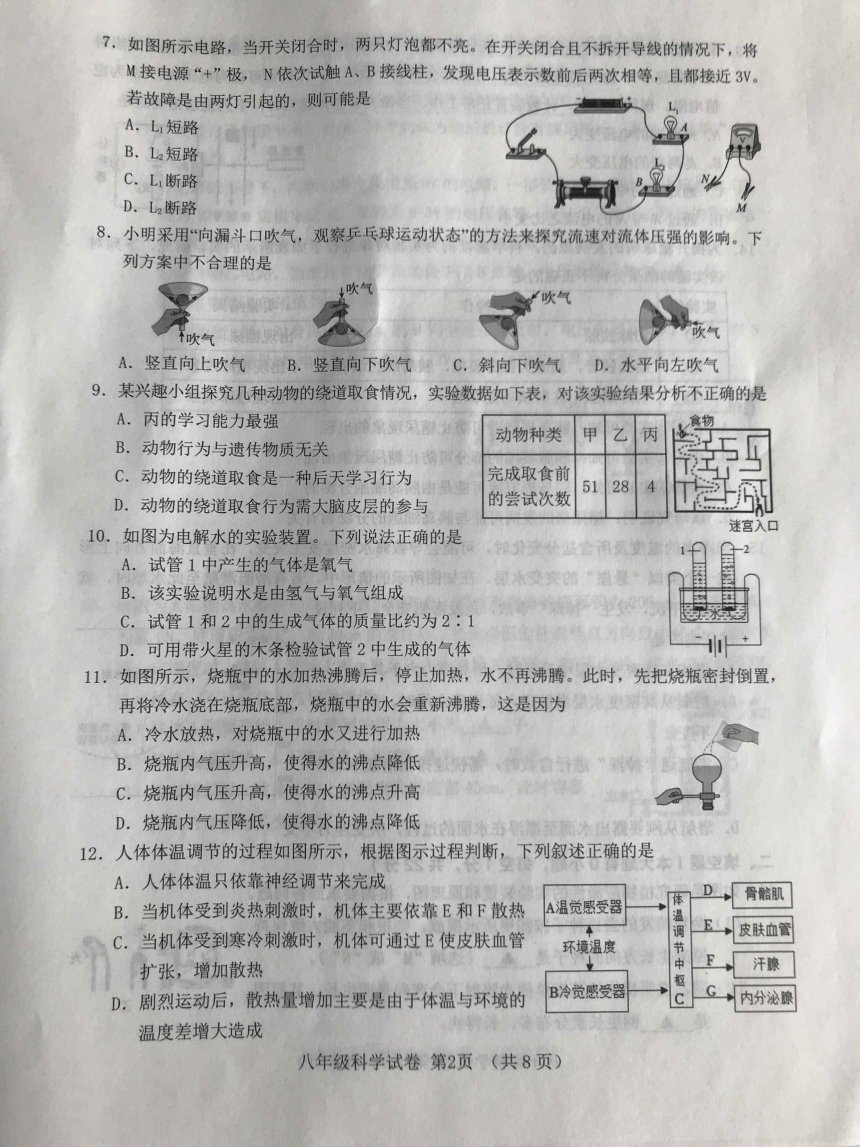 7. 如图所示电路，当开关闭合时，两只灯泡都不亮。在开关闭合且不拆开导线的情况下，将
M 接电源“+”极， N 依次试触 A、B 接线柱，发现电压表示数前后两次相等，且都接近 3V。
若故障是由两灯引起的，则可能是
A. L₁短路
B. L₂短路
C. L₁断路
D. L₂断路
L₁
A
B
V
N
M
8. 小明采用“向漏斗口吹气，观察乒乓球运动状态”的方法来探究流速对流体压强的影响。下
列方案中不合理的是
吹气
吹气
吹气
吹气
A. 竖直向上吹气
B. 竖直向下吹气
C. 斜向下吹气
D. 水平向左吹气
9. 某兴趣小组探究几种动物的绕道取食情况，实验数据如下表，对该实验结果分析不正确的是
A. 丙的学习能力最强
B. 动物行为与遗传物质无关
C. 动物的绕道取食是一种后天学习行为
D. 动物的绕道取食行为需大脑皮层的参与
动物种类 甲 乙 丙
完成取食前
的尝试次数 51 28 4
食物
迷宫入口
10. 如图为电解水的实验装置。下列说法正确的是
A. 试管 1 中产生的气体是氧气
B. 该实验说明水是由氢气与氧气组成
C. 试管 1 和 2 中的生成气体的质量比约为 2∶1
D. 可用带火星的木条检验试管 2 中生成的气体
1
2
水
－ ＋
11. 如图所示，烧瓶中的水加热沸腾后，停止加热，水不再沸腾。此时，先把烧瓶密封倒置，
再将冷水浇在烧瓶底部，烧瓶中的水会重新沸腾，这是因为
A. 冷水放热，对烧瓶中的水又进行加热
B. 烧瓶内气压升高，使得水的沸点降低
C. 烧瓶内气压升高，使得水的沸点升高
D. 烧瓶内气压降低，使得水的沸点降低
12. 人体体温调节的过程如图所示，根据图示过程判断，下列叙述正确的是
A. 人体体温只依靠神经调节来完成
B. 当机体受到炎热刺激时，机体主要依靠 E 和 F 散热
C. 当机体受到寒冷刺激时，机体可通过 E 使皮肤血管
扩张，增加散热
D. 剧烈运动后，散热量增加主要是由于体温与环境的
温度差增大造成
A温觉感受器
环境温度
B冷觉感受器
体温调节中枢C
D 骨骼肌
E 皮肤血管
F 汗腺
G 内分泌腺
八年级科学试卷 第2页 （共 8 页）